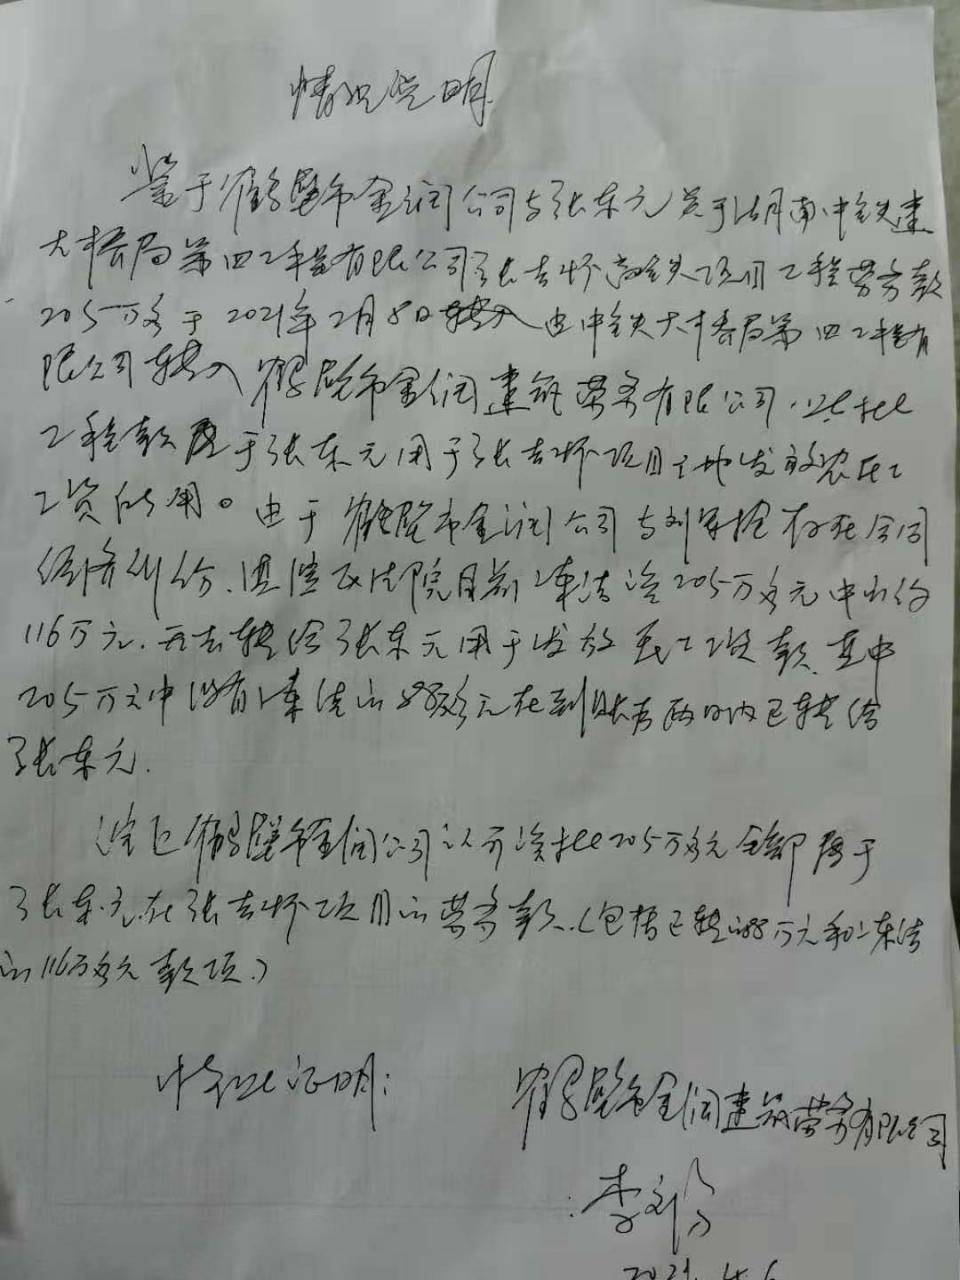 情况说明
鉴于鹤壁市金润公司与张东元关于湖南中铁建
大桥局第四工程有限公司张吉怀高铁项目工程劳务款
205万多于2021年2月8日转入由中铁大桥局第四工程有
限公司转入鹤壁市金润建筑劳务有限公司，此批
工程款属于张东元用于张吉怀项目工地发放农民工
工资所用。由于鹤壁市金润公司与刘军 存在合同
债务纠纷，淇滨区法院目前冻结这205万多元中的约
116万元，无法转给张东元用于发放民工工资款，其中
205万元中没有冻结的88万多元在到账后两日内已转给
张东元.
淇滨区鹤壁市金润公司认可这批205万多元全部属于
张东元在张吉怀项目的劳务款.（包括已转的88万元和冻结
的116万多元款项.）
特此证明： 鹤壁市金润建筑劳务有限公司
李
2021.4.6